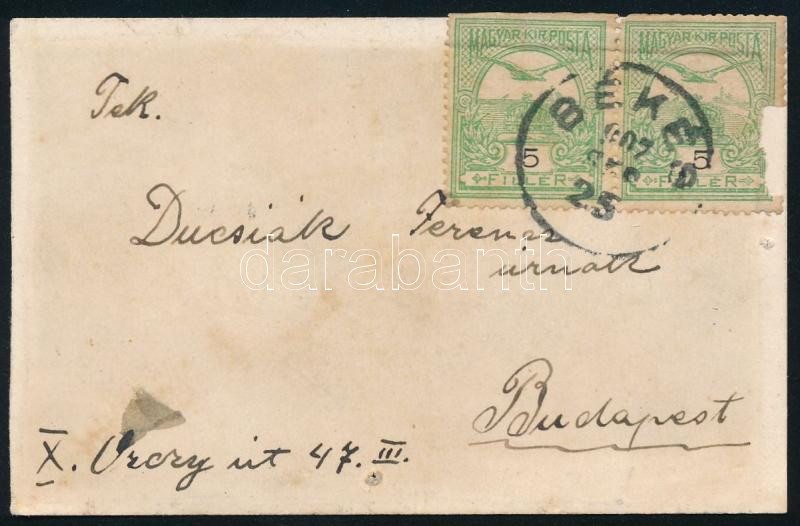 MAGYAR KIR. POSTA MAGYAR KIR. POSTA
BÉKÉS
907
25
5 5
FILLÉR FILLÉR
Tek.
Ducsiák Ferencz
úrnak
darabanth
Budapest
X. Orczy út 47. III.